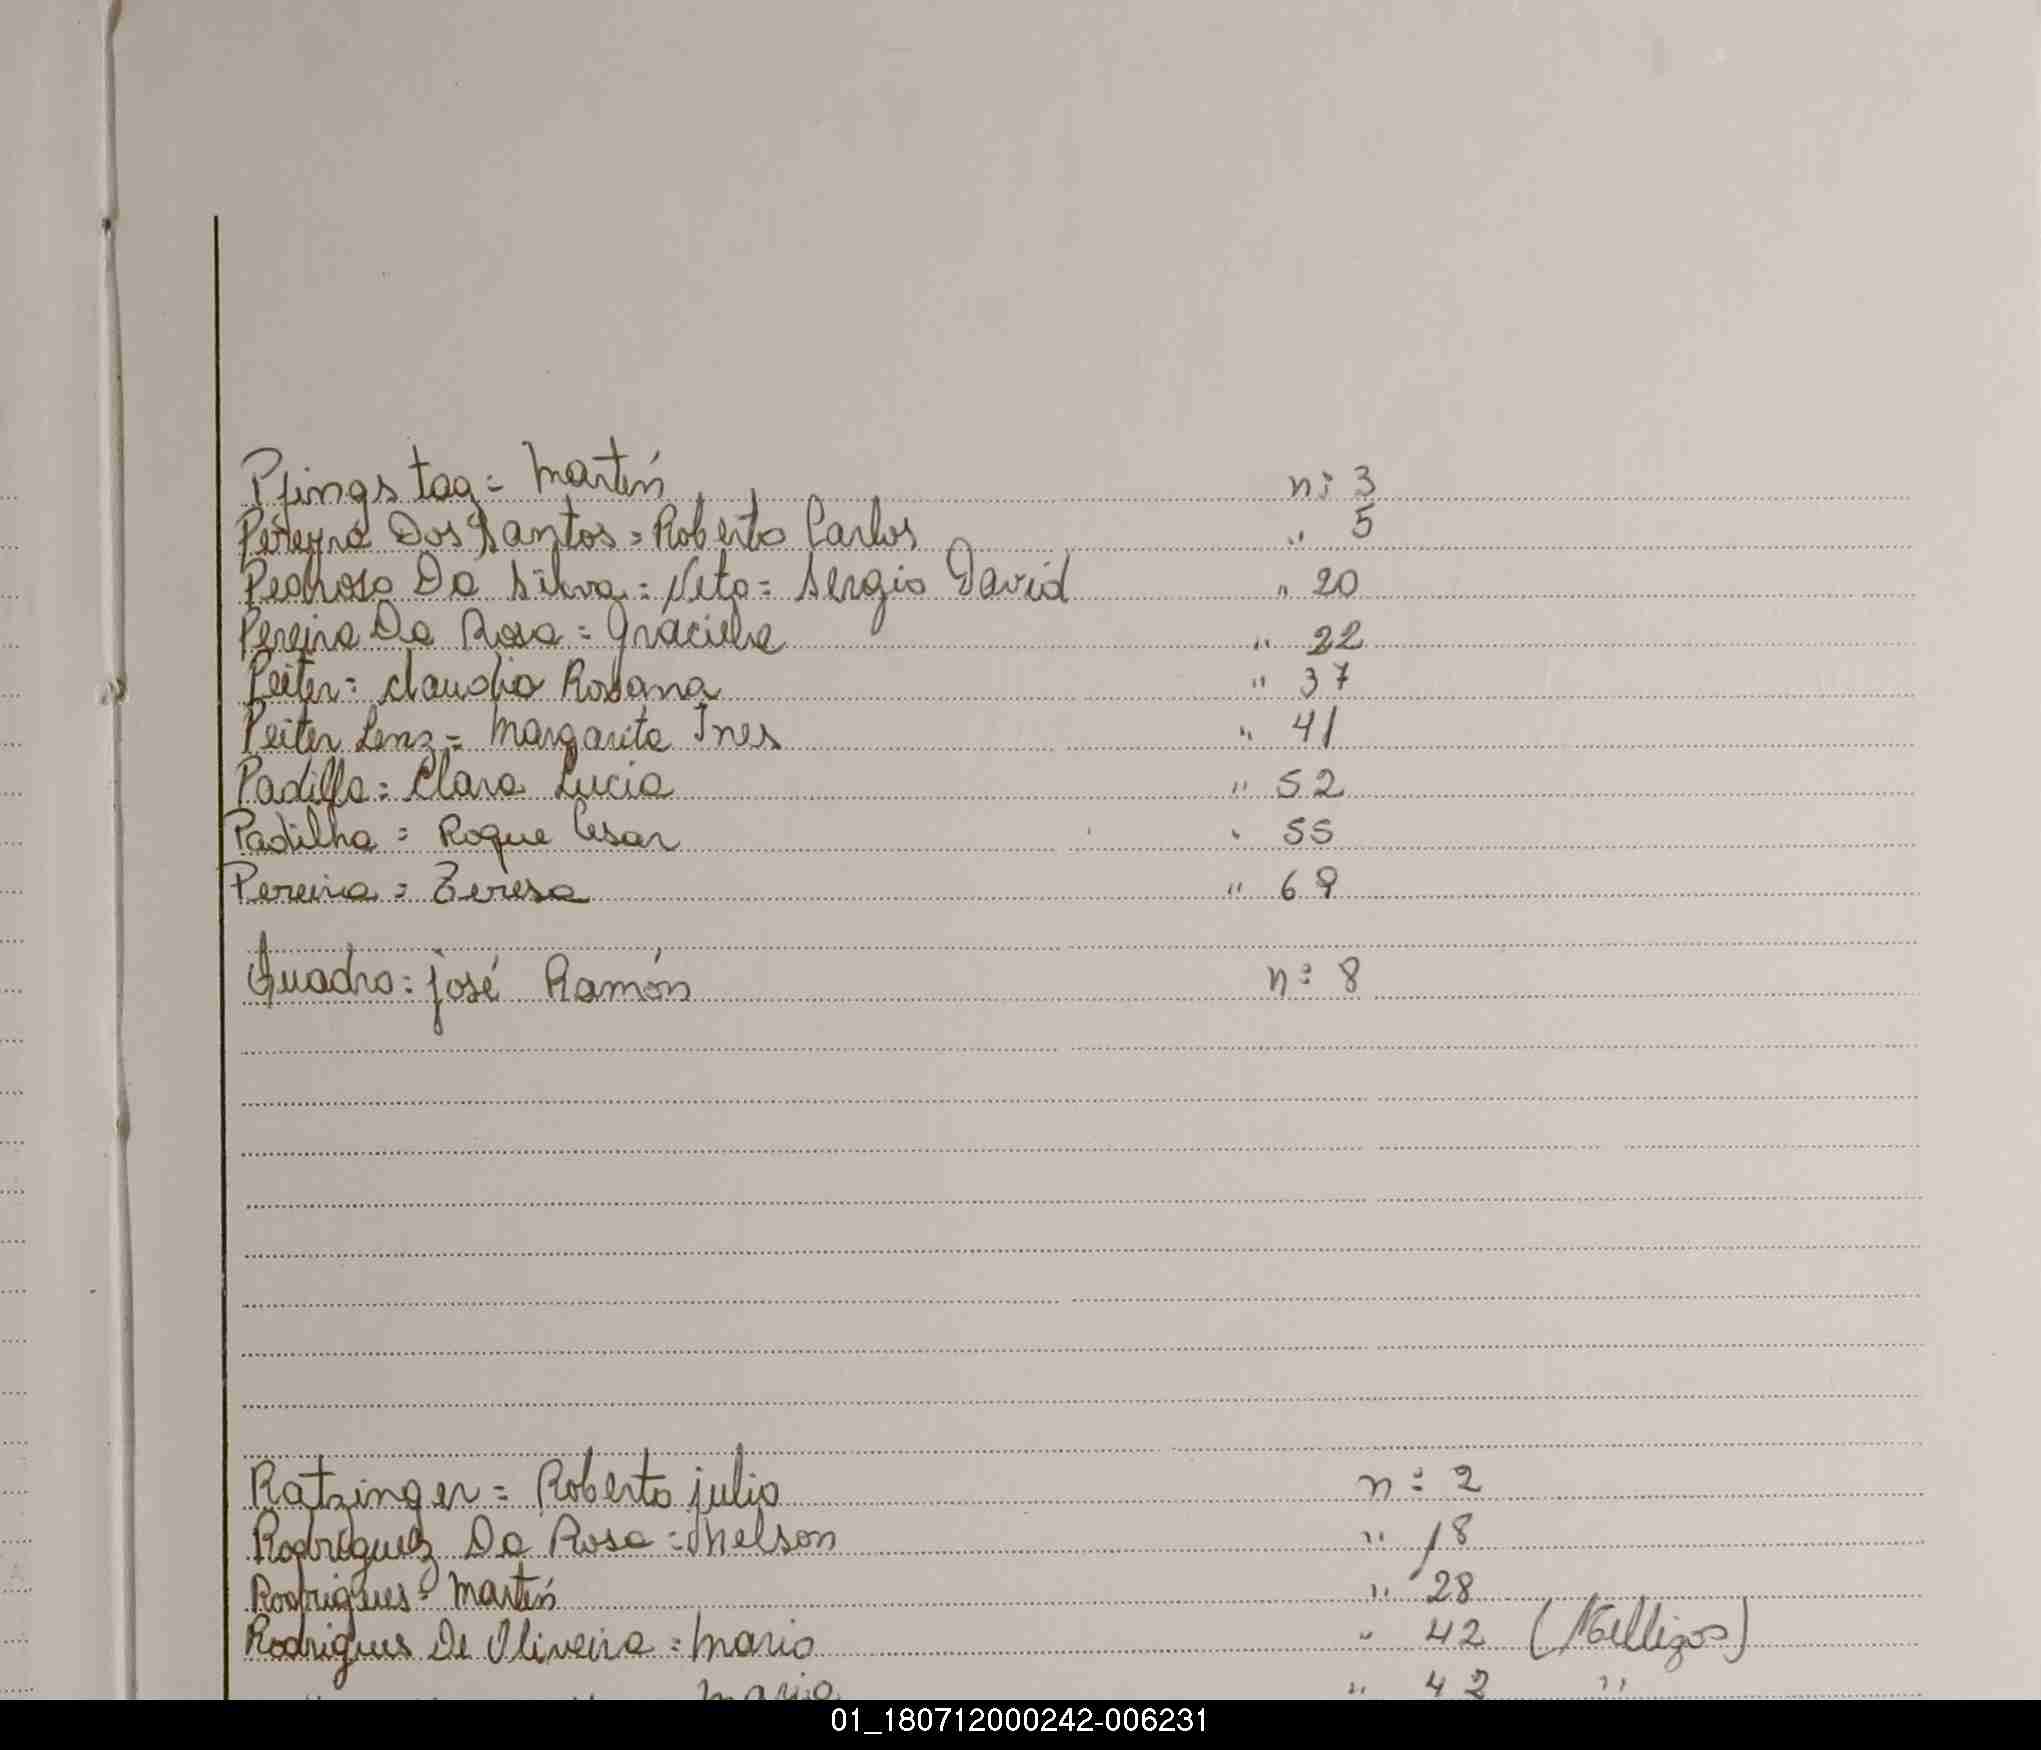 Pfingstag = Martín n: 3
Pereyra Dos Santos = Roberto Carlos " 5
Pedroso Da Silva = Neto = Sergio David " 20
Pereira Da Rosa = Graciela " 22
Peiter = Claudia Rosana " 37
Peiter Lenz = Margarita Ines " 41
Padilla = Clara Lucia " 52
Padilha = Roque Cesar " 55
Pereira = Teresa " 69
Quadra = José Ramón n: 8
Ratzinger = Roberto julio n: 2
Rodriguez Da Rosa = Nelson " 18
Rodrigues = Martín " 28
Rodrigues De Oliveira = Mario " 42 (Mellizos)
" " " Mario " 42 "
01_180712000242-006231